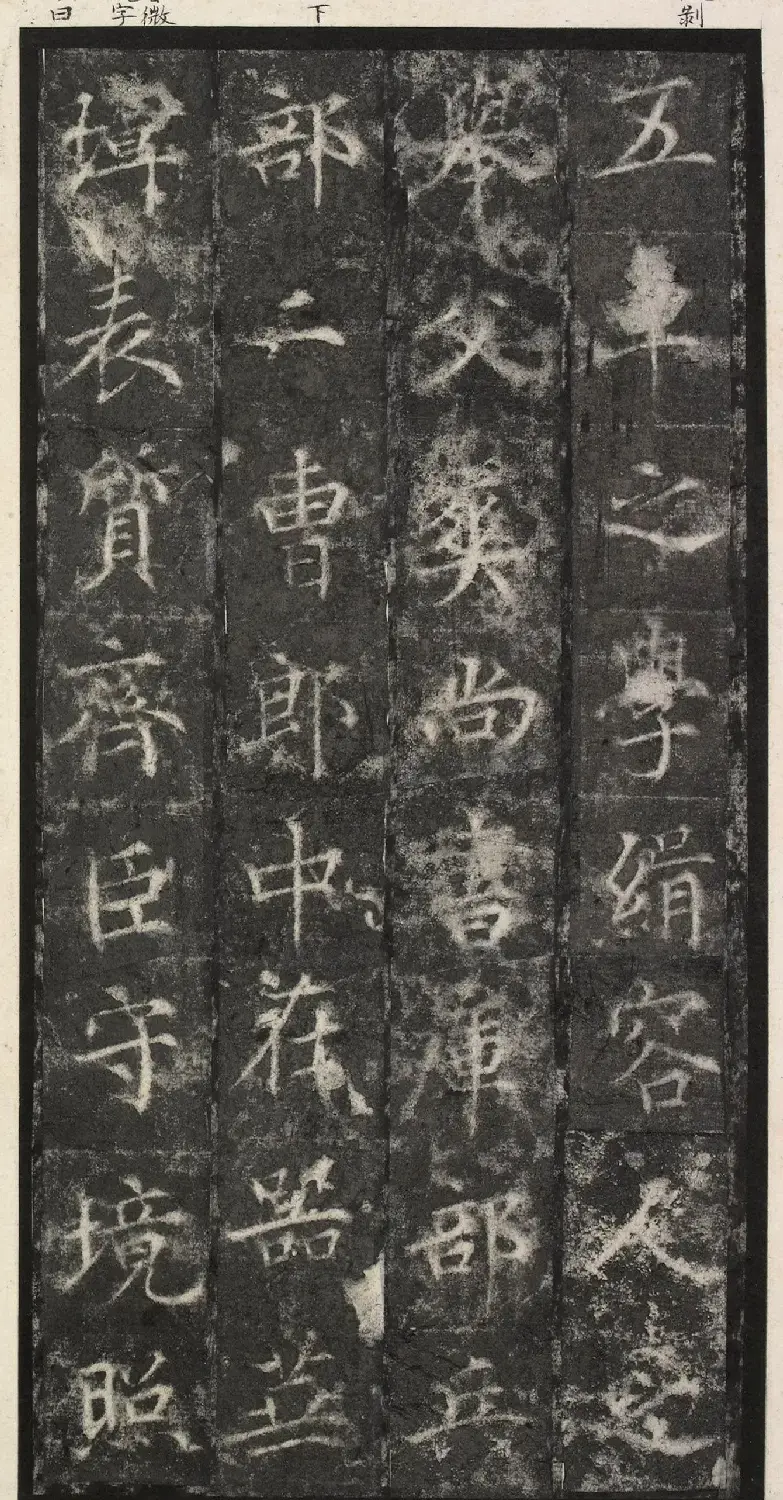 剝
下
微
字
曰
五車之學緝容人之
舉父奭尚書庫部兵
部二曹郎中器並
瑋表質齊臣守境照